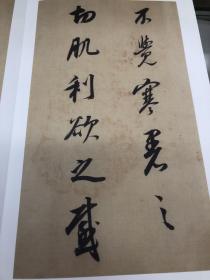 不觉寒暑之
切肌利欲之感